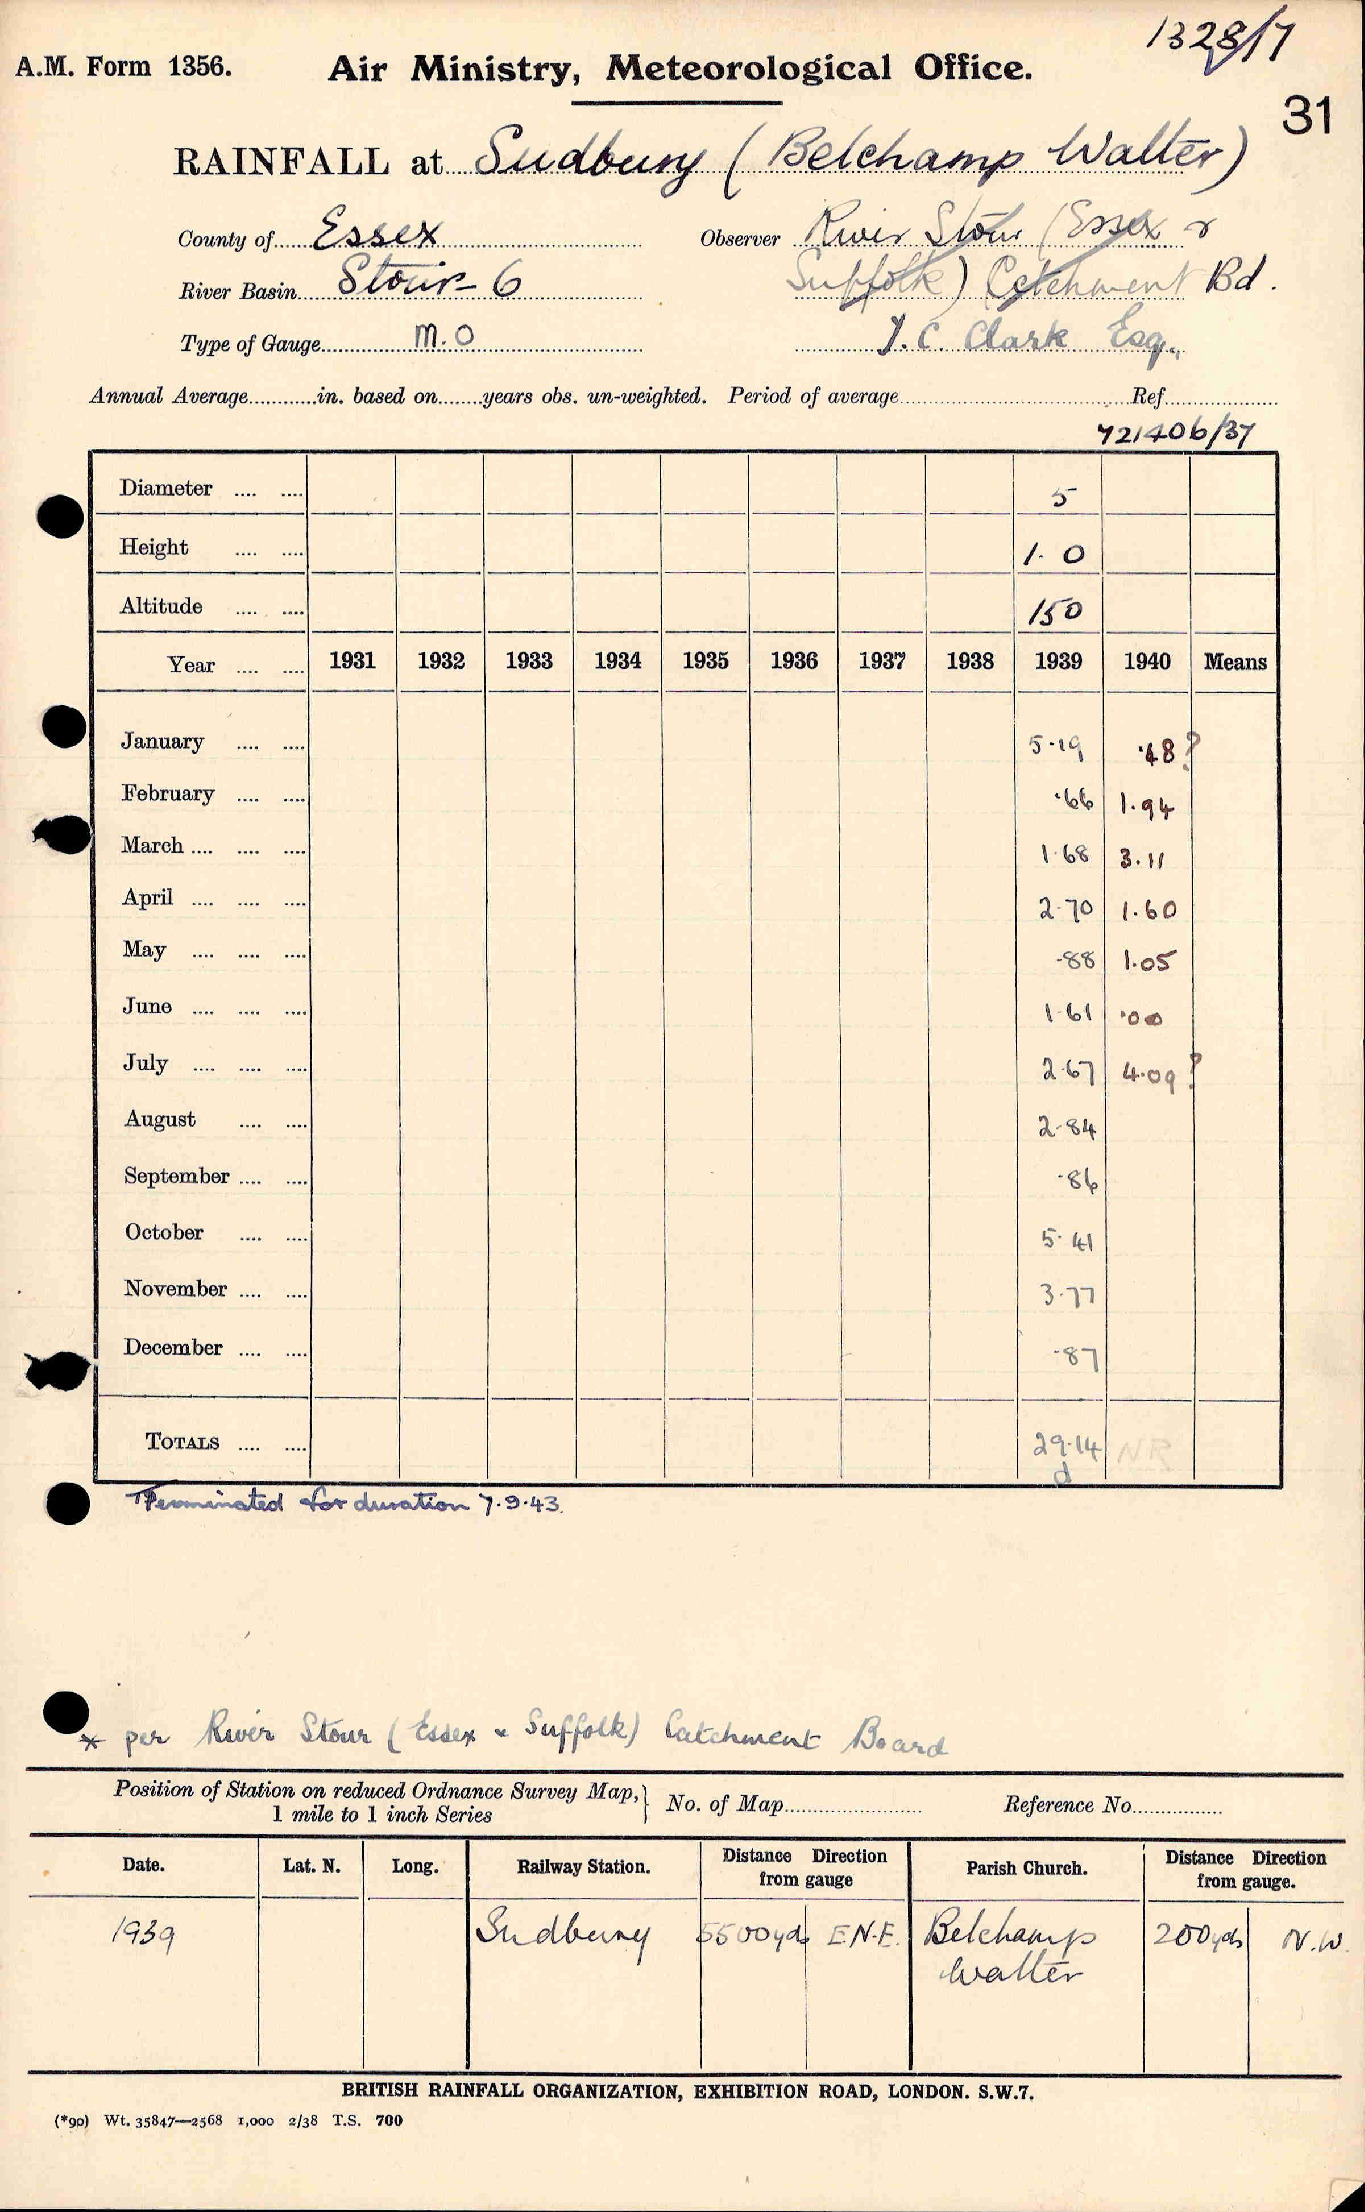 1328/7
A.M. Form 1356. Air Ministry, Meteorological Office.
31
RAINFALL at Sudbury (Belchamp Walter)
County of Essex Observer River Stour (Essex &
River Basin Stour - 6 Suffolk) Catchment Bd.
Type of Gauge M.O Y.C. Clark Esq.
Annual Average in. based on years obs. un-weighted. Period of average Ref.
721406/37
Diameter 5
Height 1.0
Altitude 150
Year 1931 1932 1933 1934 1935 1936 1937 1938 1939 1940 Means
January 5.19 .48?
February .66 1.94
March 1.68 3.11
April 2.70 1.60
May .88 1.05
June 1.61 .00
July 2.67 4.09?
August 2.84
September .86
October 5.41
November 3.77
December .87
TOTALS 29.14 NR
d
Terminated for duration 7.9.43.
* per River Stour (Essex & Suffolk) Catchment Board
Position of Station on reduced Ordnance Survey Map, 1 mile to 1 inch Series } No. of Map Reference No.
Date. Lat. N. Long. Railway Station. Distance Direction from gauge Parish Church. Distance Direction from gauge.
1939 Sudbury 5500yds E.N.E. Belchamp Walter 200yds N.W.
BRITISH RAINFALL ORGANIZATION, EXHIBITION ROAD, LONDON. S.W.7.
(*90) Wt. 35847—2568 1,000 2/38 T.S. 700